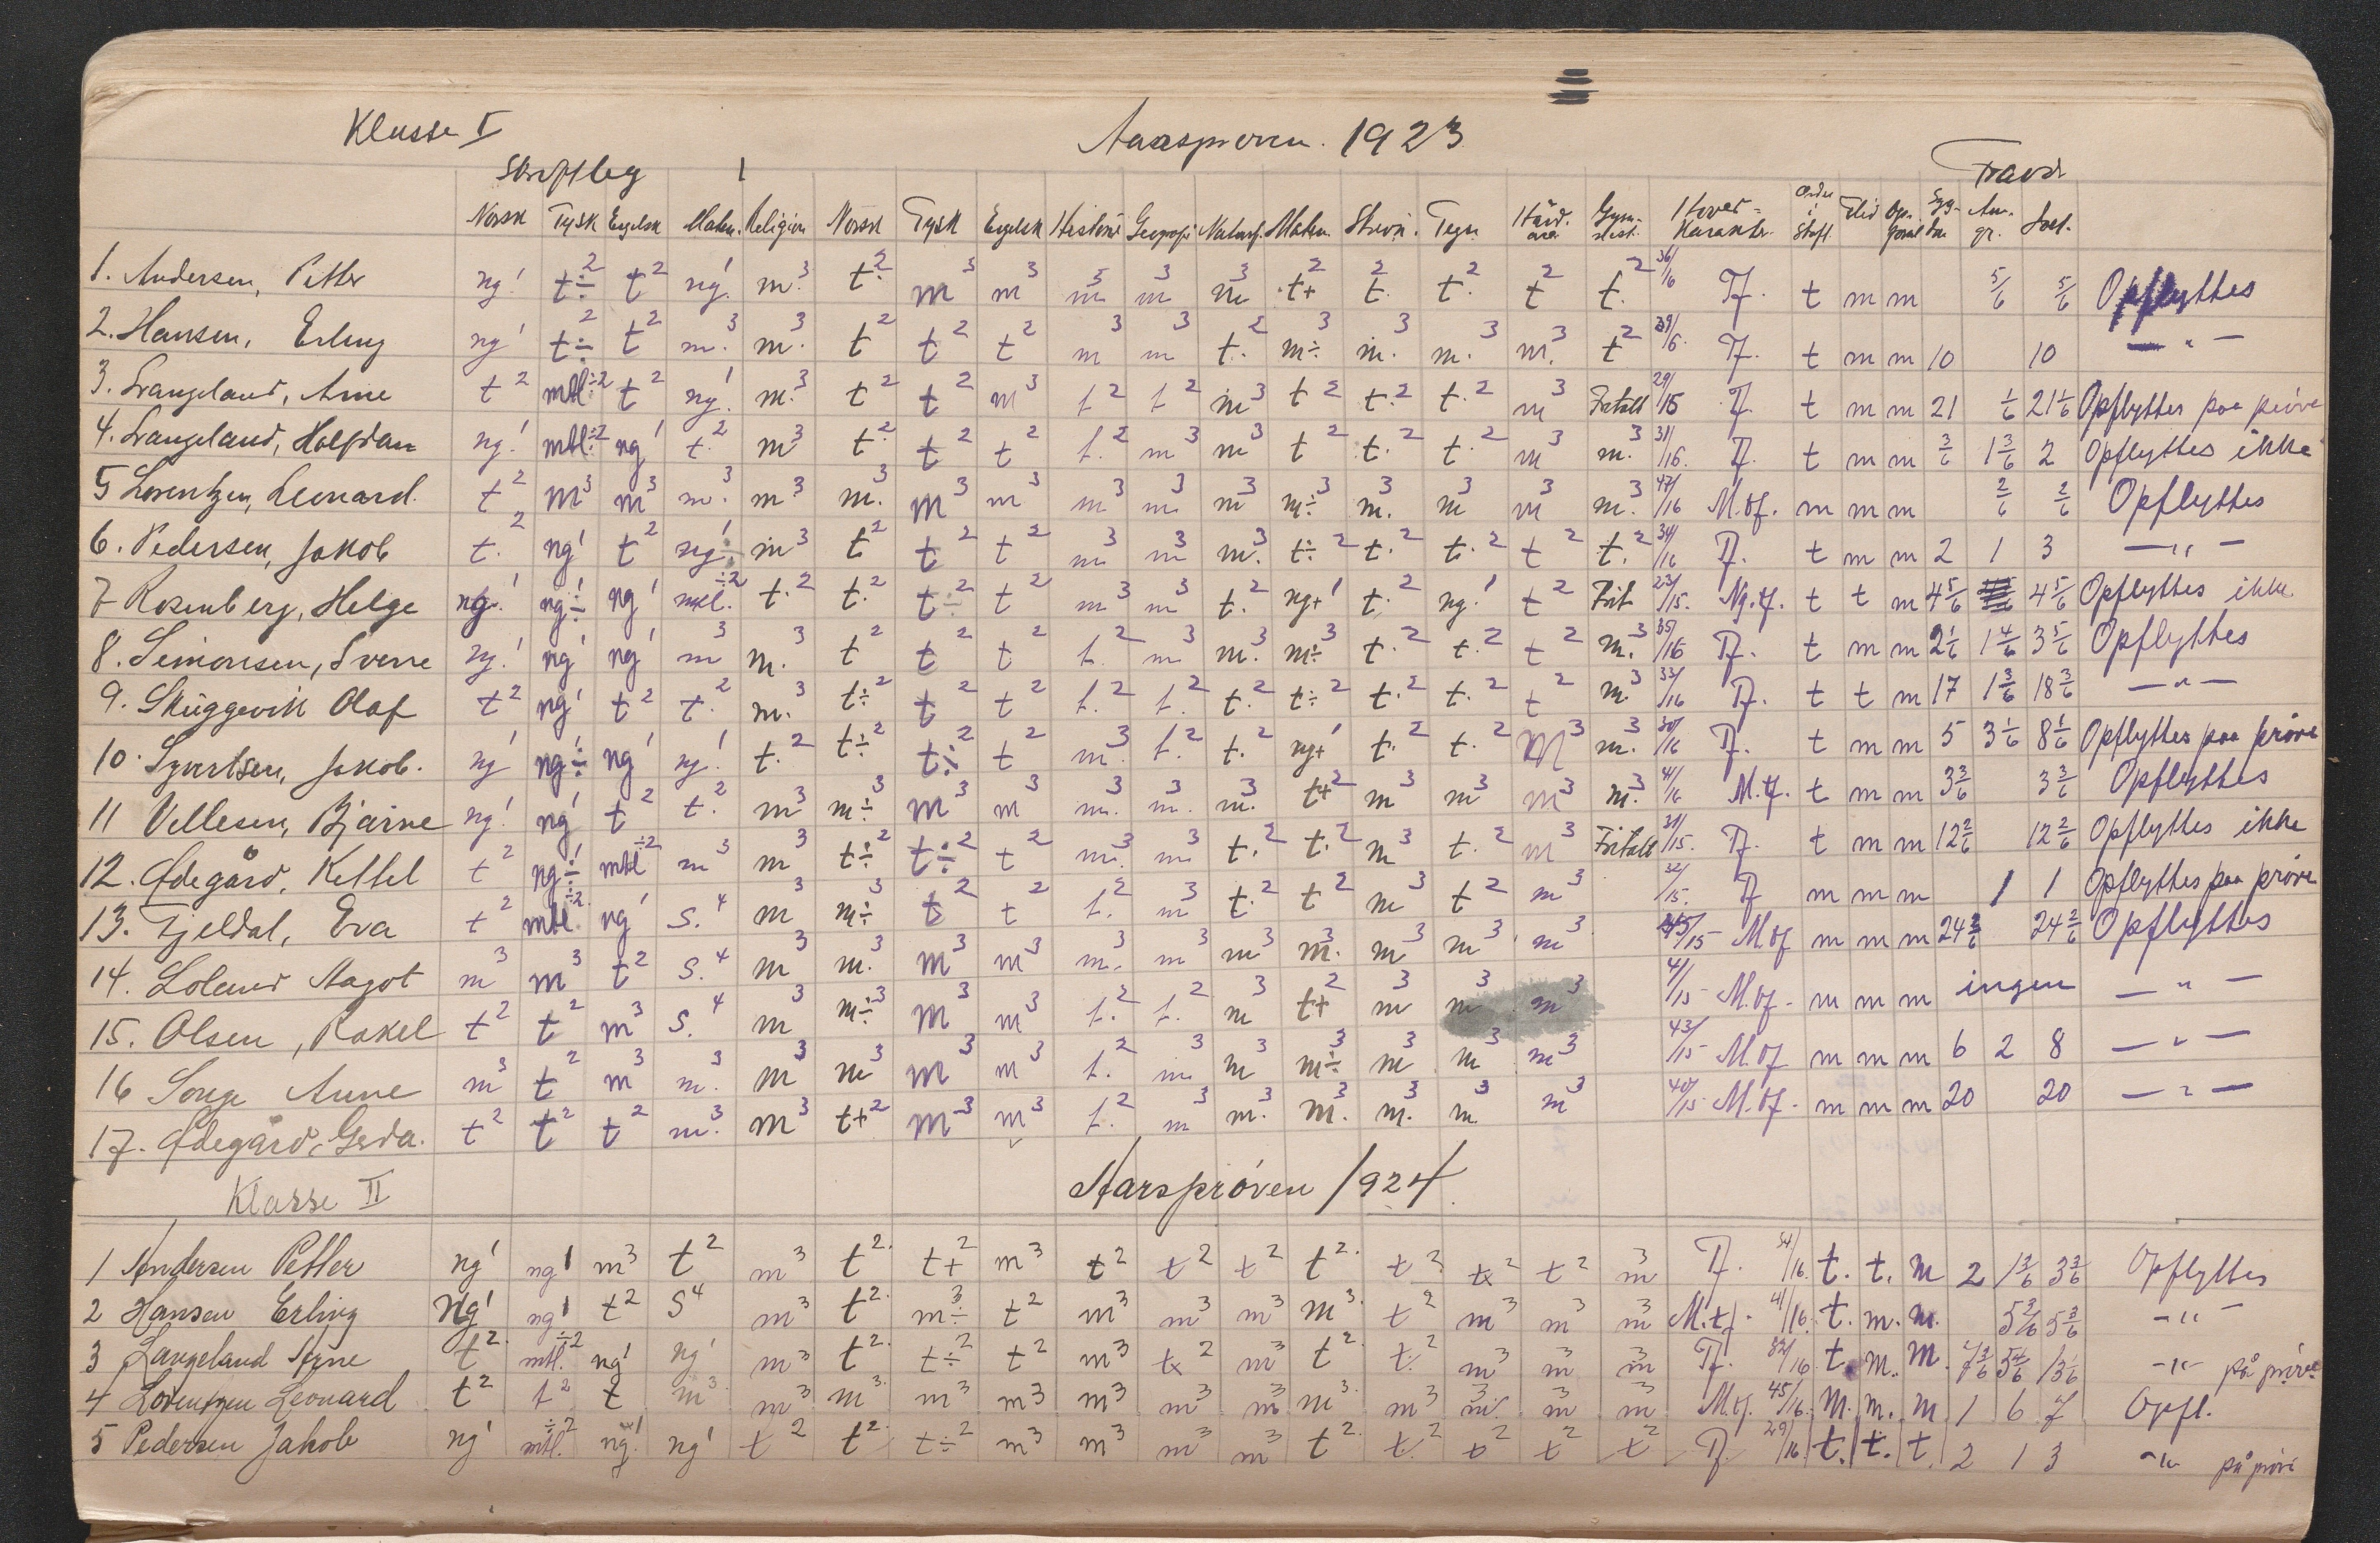 Klasse I Aarsprøven. 1923
Skriftleg Fravær
Norsk Tysk Engelsk Matem. Religion Norsk Tysk Engelsk Historie Geografi Naturf. Matem. Skrivn. Tegn. Hånd. Gym- Hoved- Karakter. Orden Flid Op- Syg- An- Saml.
1. Andersen, Petter ng1 t÷2 t2 ng.1 m.3 t.2 m3 m3 m3 m3 m3 t+2 t.2 t.2 t2 t.2 36/16 Tf. t m m 5/6 5/6 Opflyttes
2. Hansen, Erling ng1 t÷2 t2 m.3 m.3 t2 t2 t2 m3 m3 t.2 m÷3 m.3 m.3 m.3 t2 39/16. Tf. t m m 10 10 — " —
3. Langeland, Arne t2 mtl.÷2 t2 ng.1 m.3 t2 t2 m3 t2 t2 m3 t2 t.2 t.2 m3 Fritatt 29/15 Tf. t m m 21 1/6 21 1/6 Opflyttes paa prøve
4. Langeland, Halfdan ng.1 mtl.÷2 ng1 t.2 m3 t.2 t2 t2 t.2 m3 m3 t2 t.2 t.2 m3 m.3 31/16. Tf. t m m 3/6 1 3/6 2 Opflyttes ikke
5 Lorentzen, Leonard. t2 m3 m3 m.3 m.3 m.3 m3 m3 m3 m3 m3 m÷3 m.3 m3 m3 m.3 47/16 M.tf. m m m 2/6 2/6 Opflyttes
6. Pedersen, Jakob t.2 ng1 t2 ng÷1 m3 t2 t2 t2 m3 m3 m.3 t÷2 t.2 t.2 t2 t.2 34/16 Tf. t m m 2 1 3 — " —
7 Rosenberg, Helge ng.1 ng÷1 ng1 mtl.÷2 t.2 t.2 t÷2 t2 m3 m3 t.2 ng+1 t.2 ng.1 t2 Frit 23/15. Ng.tf. t t m 4 5/6 4 5/6 Opflyttes ikke
8. Simonsen, Sverre ng.1 ng1 ng1 m3 m.3 t2 t2 t2 t.2 m3 m.3 m÷3 t.2 t.2 t2 m.3 35/16 Tf. t m m 2 1/6 1 4/6 3 5/6 Opflyttes
9. Skuggevik Olaf t2 ng1 t2 t.2 m.3 t÷2 t2 t2 t.2 t.2 t.2 t÷2 t.2 t.2 t2 m3 33/16 Tf. t t m 17 1 3/6 18 3/6 — " —
10. Syvertsen, Jakob. ng1 ng÷1 ng1 ng.1 t.2 t÷2 t÷2 t2 m.3 t.2 t.2 ng+1 t.2 t.2 m3 m.3 30/16 Tf. t m m 5 3 1/6 8 1/6 Opflyttes paa prøve
11 Vellesen, Bjarne ng.1 ng1 t2 t.2 m3 m÷3 m3 m3 m.3 m.3 m.3 t+2 m3 m3 m3 m.3 41/16 M.tf. t m m 3 3/6 3 3/6 Opflyttes
12. Ødegård, Kettel t2 ng÷1 mtl÷2 m3 m3 t÷2 t÷2 t2 m.3 m3 t.2 t.2 m3 t.2 m3 Fritatt 31/15. Tf. t m m 12 2/6 12 2/6 Opflyttes ikke
13. Fjeldal, Eva t2 mtl÷2 ng1 S.4 m3 m÷3 t2 t2 t.2 m3 t.2 t2 m3 t2 m3 32/15. Tf m m m 1 1 Opflyttes paa prøve
14. Loland Aagot m3 m3 t2 S.4 m3 m.3 m3 m3 m.3 m3 m3 m.3 m3 m3 m3 45/15 M.tf m m m 24 2/6 24 2/6 Opflyttes
15. Olsen, Rakel t2 t2 m3 S.4 m3 m÷3 m3 m3 t.2 t.2 m3 t+2 m3 m3 m3 41/15 M.tf. m m m ingen — " —
16 Songe Anne m3 t2 m3 m.3 m3 m3 m3 m3 t.2 m3 m3 m÷3 m3 m3 m3 43/15 M.tf m m m 6 2 8 — " —
17. Ødegård, Gerda. t2 t2 t2 m.3 m3 t+2 m3 m3 t.2 m3 m.3 m.3 m.3 m.3 m3 40/15 M.tf. m m m 20 20 — " —
Klasse II Aarsprøven 1924.
1 Andersen Petter ng1 ng1 m3 t2 m3 t2. t+2 m3 t2 t2 t2 t2. t2 t2 t2 m3 Tf. 34/16. t. t. m 2 1 3/6 3 3/6 Opflyttes
2 Hansen Erling Ng1 ng1 t2 S4 m3 t2. m÷3 t2 m3 m3 m3 m3. t2 m3 m3 m3 M.tf. 41/16. t. m. m. 5 3/6 5 3/6 — " —
3 Langeland Arne t2. mtl.÷2 ng1 ng1 m3 t2. t÷2 t2 m3 t2 m3 t2. t.2 m3 m3 m3 Tf. 32/16 t. m. m. 7 3/6 5 4/6 13 1/6 — " — på prøve
4 Lorentzen Leonard t2 t2 t m3 m3 m3. m3 m3 m3 m3 m3 m3. m3 m3 m3 m3 M.tf. 45/16. m. m. m 1 6 7 Opfl.
5 Pedersen Jakob ng1 mtl.÷2 ng.1 ng1 t2 t2. t÷2 m3 m3 m3 m3 t2. t2 t2 t2 t2 Tf. 29/16 t. t. t. 2 1 3 — " — på prøve